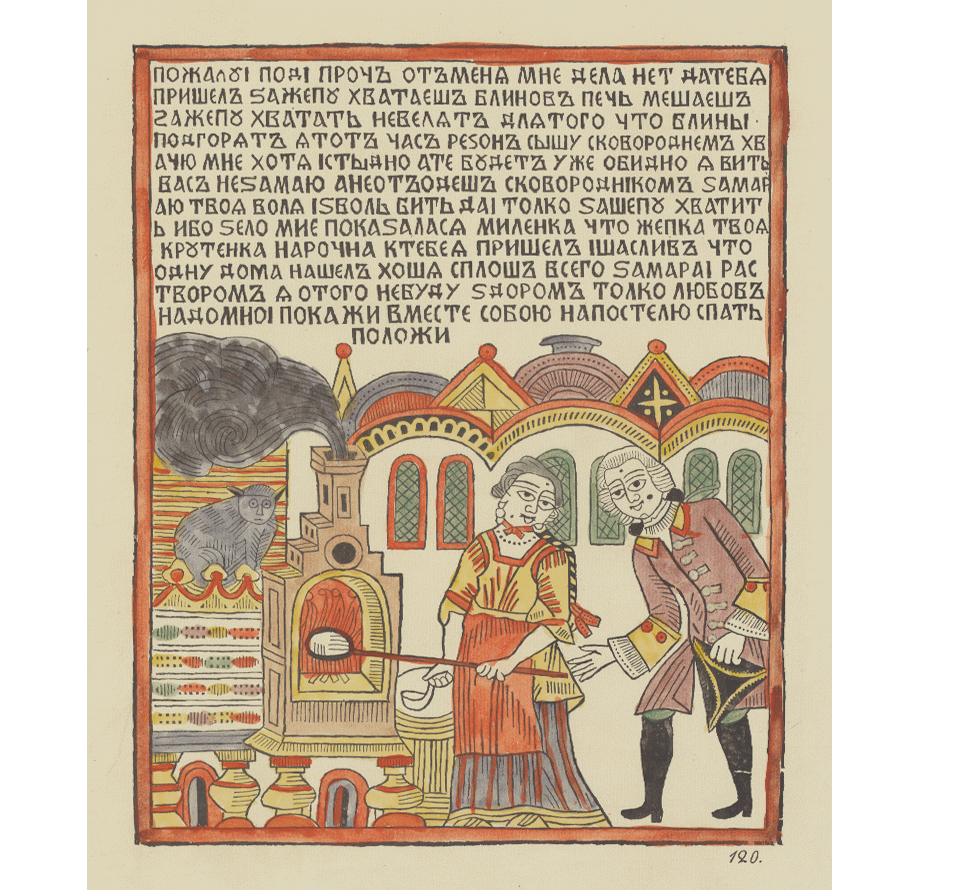 ПОЖАЛꙋІ ПОДІ ПРОЧЪ ОТЪМЕНЯ МНЕ ДЕЛА НЕТ ДАТЕБЯ
ПРИШЕЛЪ ЅАЖЕПꙋ ХВАТАЕШЪ БЛИНОВЪ ПЕЧЬ МЕШАЕШЪ
ЅАЖЕПꙋ ХВАТАТЬ НЕВЕЛЯТЪ ДЛЯТОГО ЧТО БЛИНЫ
ПОДГОРЯТЪ ЯТОТЪ ЧАСЪ РЕЅОНЪ СЫШУ СКОВОРОДНЕМЪ ХВ
АЧЮ МНЕ ХОТЯ ІСТЫДНО АТЕ БꙋДЕТЪ УЖЕ ОБИДНО Я БИТЬ
ВАСЪ НЕЅАМАЮ АНЕОТЪОДЕШЪ СКОВОРОДНІКОМЪ ЅАМАР
АЮ ТВОЯ ВОЛЯ ІЅВОЛЬ БИТЬ ДАІ ТОЛКО ЅАШЕПꙋ ХВАТИТ
Ь ИБО ЅЕЛО МНЕ ПОКАЅАЛАСЯ МИЛЕНКА ЧТО ЖЕПКА ТВОЯ
КРꙋТЕНКА НАРОЧНА КТЕБЕЯ ПРИШЕЛЪ ІШАСЛИВЪ ЧТО
ОДНУ ДОМА НАШЕЛЪ ХОШЯ СПЛОШЪ ВСЕГО ЅАМАРАІ РАС
ТВОРОМЪ Я ОТОГО НЕБУДУ ЅДОРОМЪ ТОЛКО ЛЮБОВЪ
НАДОМНОІ ПОКАЖИ ВМЕСТЕ СОБОЮ НАПОСТЕЛЮ СПАТЬ
ПОЛОЖИ
120.